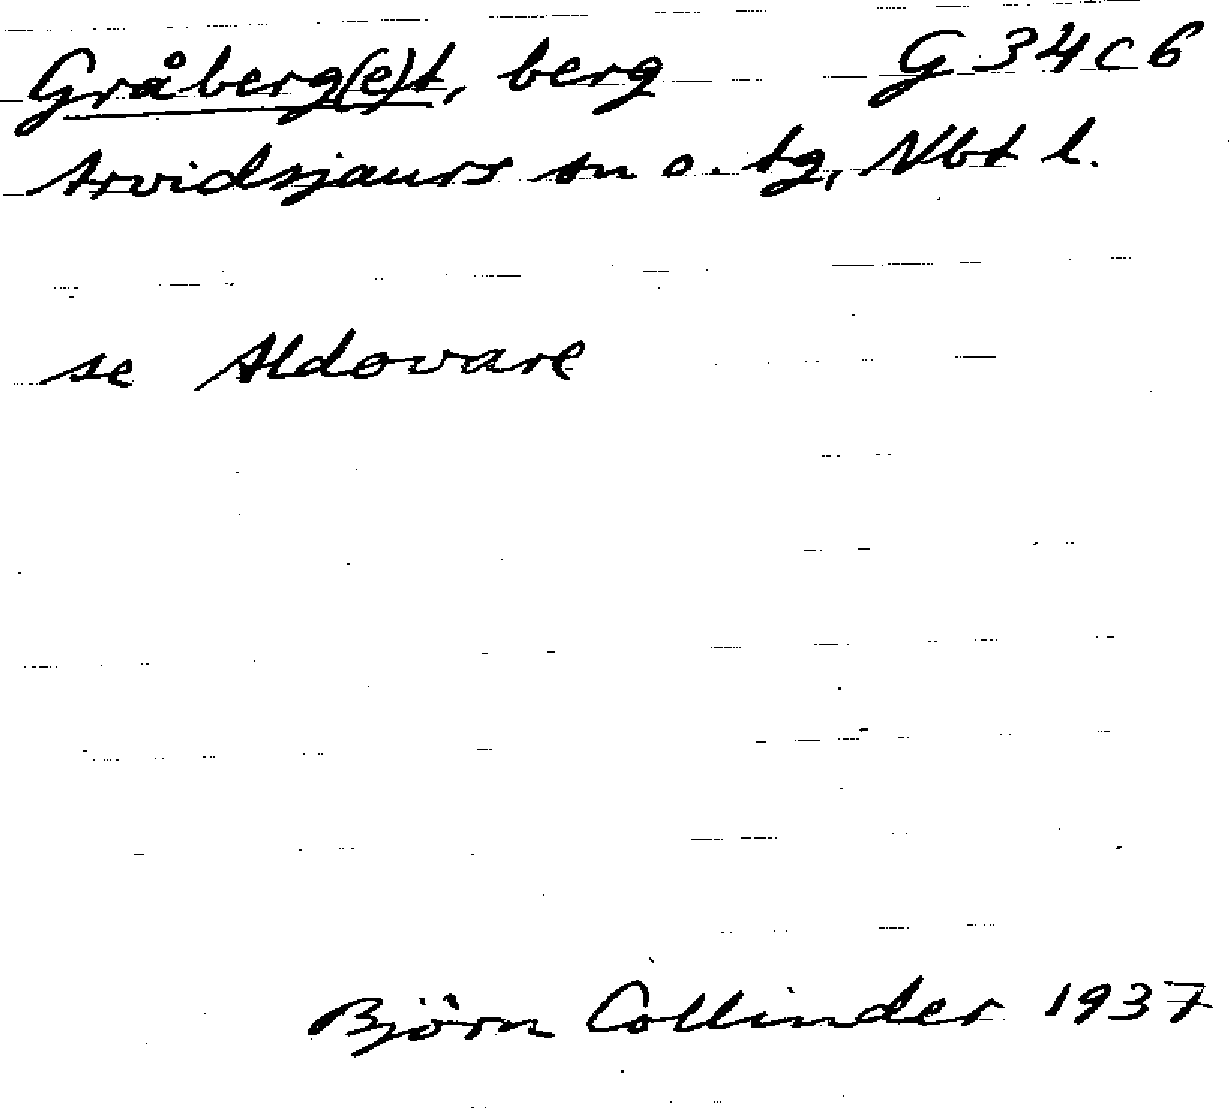 Gråberg(e)t, berg G 34 c 6
Arvidsjaurs sn o. tg, Nbt l.
se Aldovare
Björn Collinder 1937